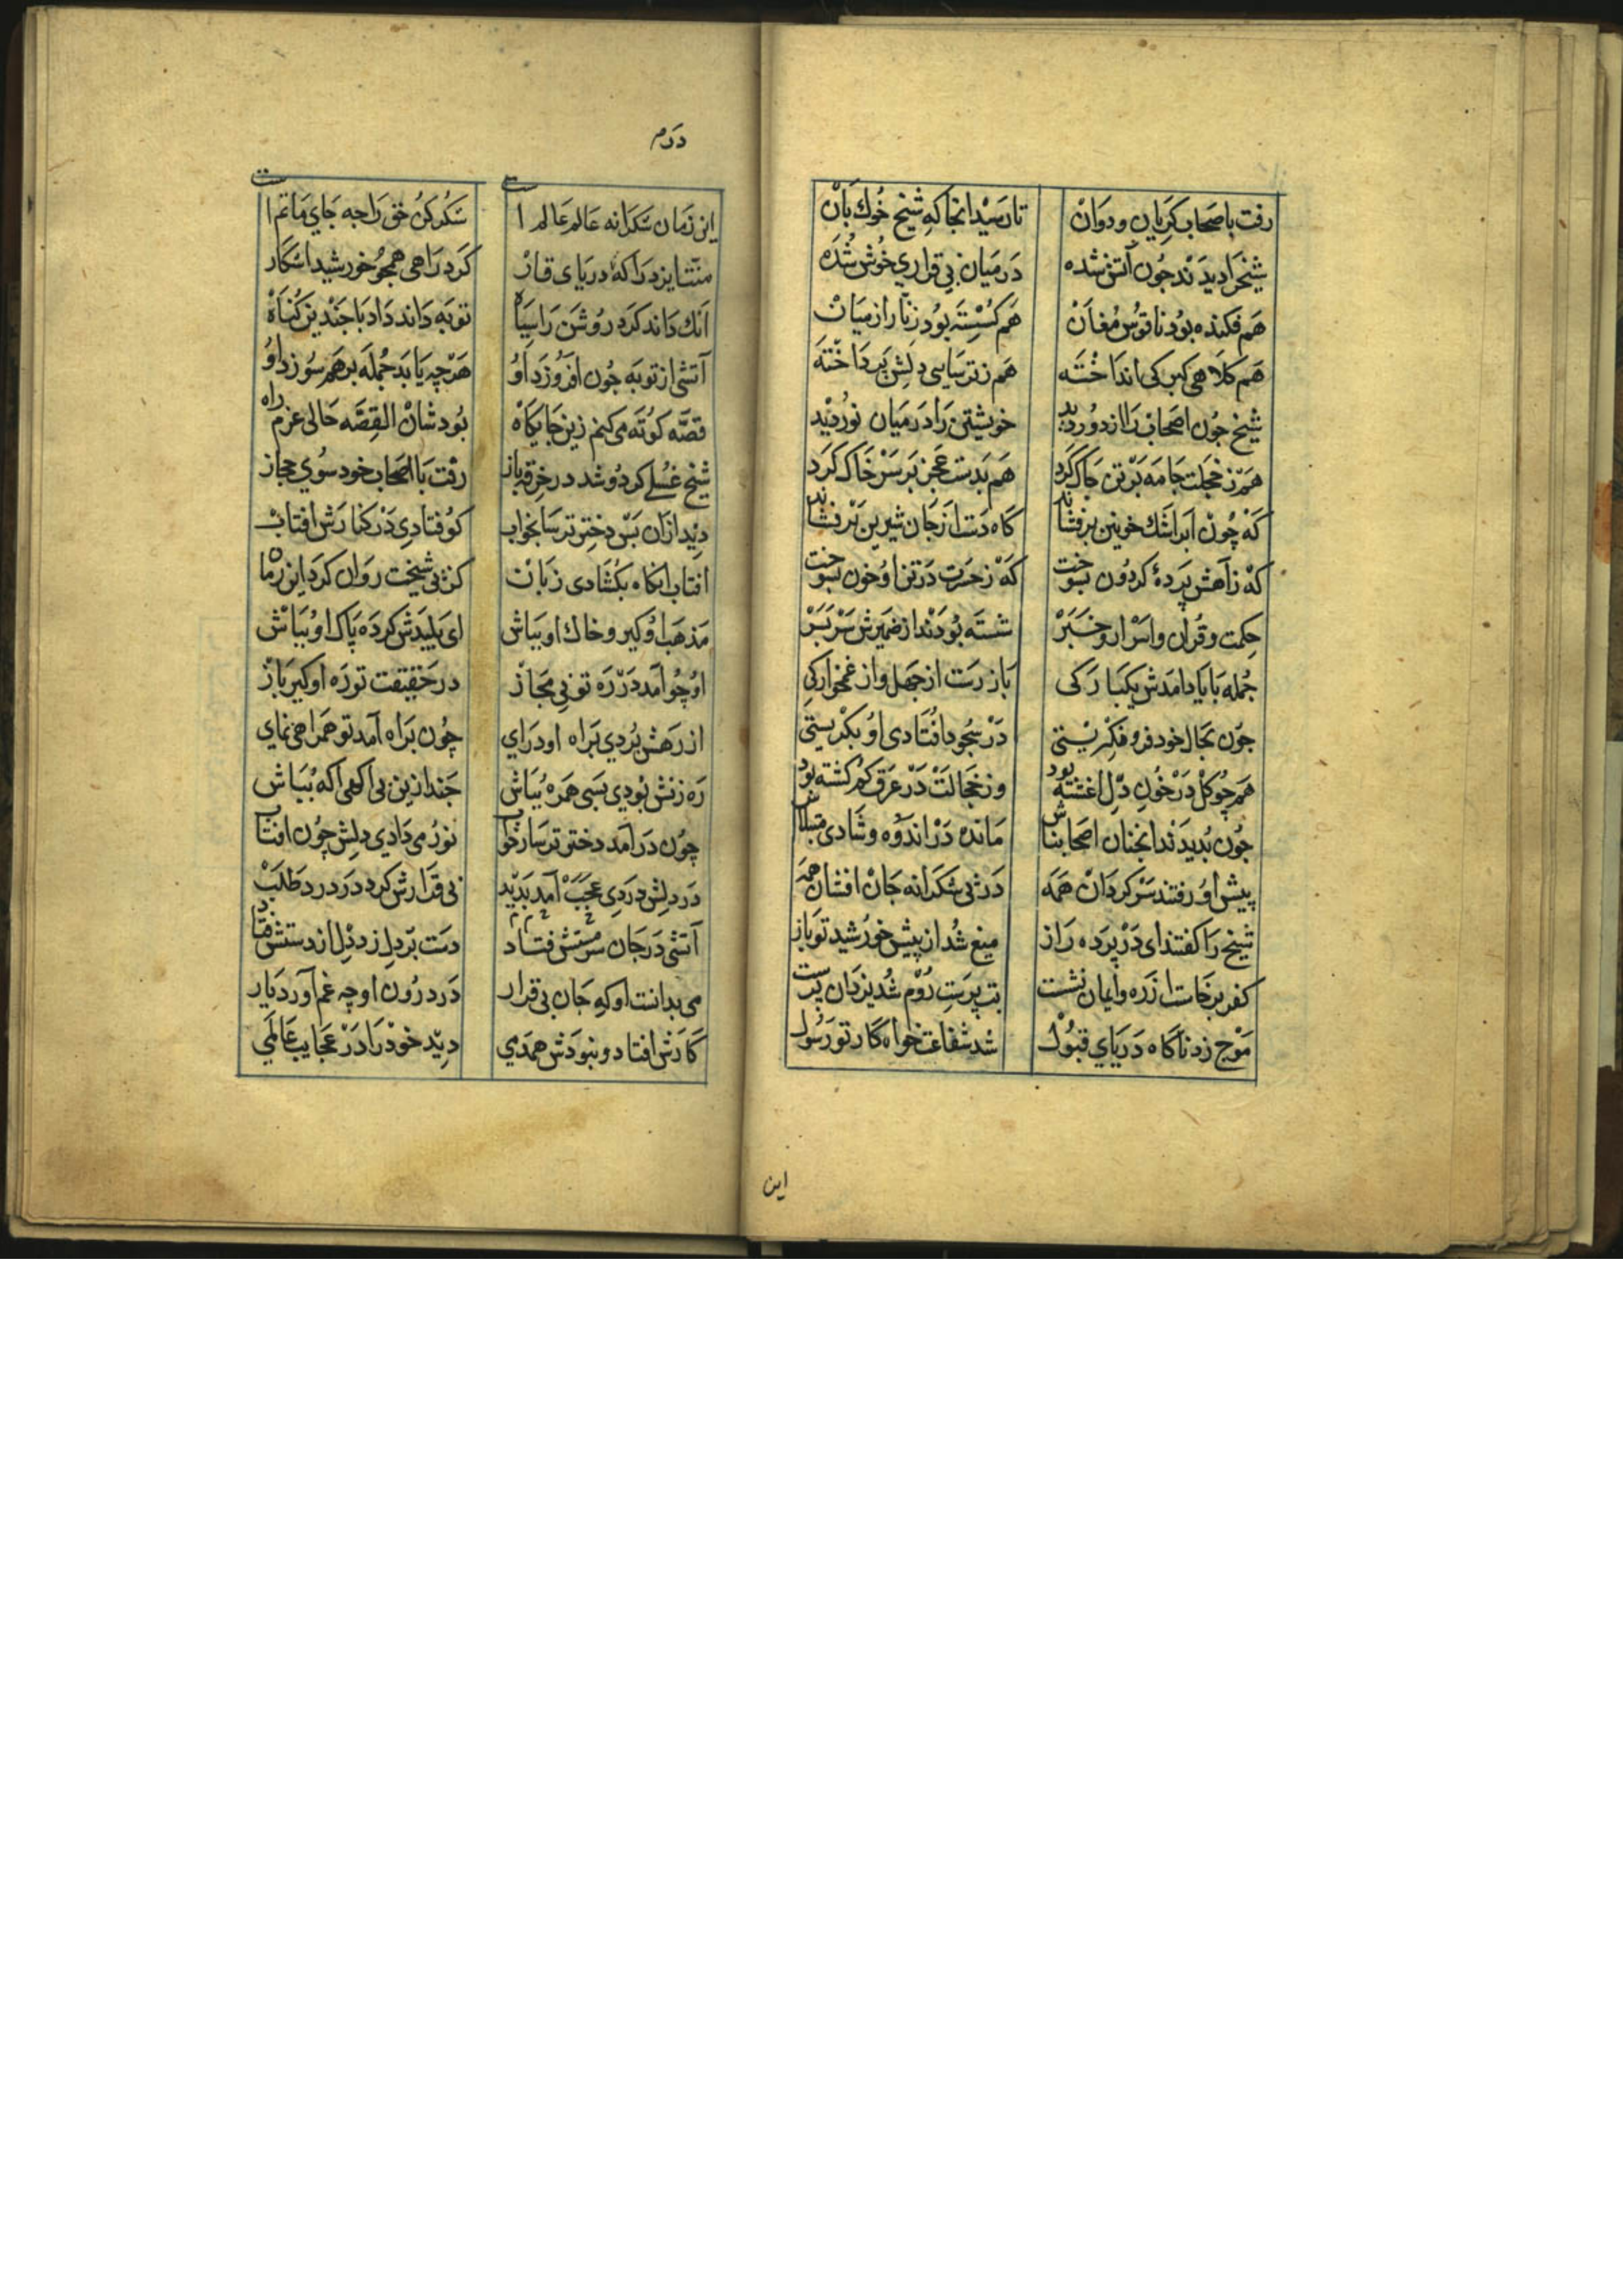 رفت با صحاب کریان و دوان تا رسید انجا که شیخ خوك بان
شیخرا دیدند جون آتش شده در میان بی قراری خوش شده
هم فکنده بود ناقوس مغان هم کسسته بود زنار از میان
هم کلاهی کبرکی انداخته هم ز ترسایی دلش پرداخته
شیخ جون اصحاب را از دور دید خویشتن را در میان نور دید
هم ز خجلت جامه بر تن جاک کرد هم بدست عجز بر سر خاک کرد
که چون ابر اشك خونین برفشاند کاه دست از جان شیرین برفشاند
که ز آهش پردهٔ کردون بسوخت که ز حسرت در تن او خون بسوخت
حکمت و قران و اسرار و خبر شسته بودند از ضمیرش سر بسر
جمله با یاد امدش یکبارکی باز رست از جهل و از غمخوارکی
جون بحال خود فرو فکریستی در سجود افتادی او بکریستی
هم جو کل در خون دل اغشته بود وز خجالت در عرق کم کشته بود
جون بدیدند انجنان اصحابناش مانده در اندوه و شادی مبتلاش
پیش او رفتند سرکردان همه در پی شکرانه جان افشان همه
شیخ را کفتند ای در پرده راز میغ شد از پیش خورشید تو باز
کفر برخاست از ره و ایمان نشست بت پرست روم شد یزدان پرست
موج زد ناکاه دریای قبول شد شفاعت خواه کار تو رسول
این
درم
این زمان شکرانه عالم عالم است شکر کن حق را جه جای ماتم است
منت ایزد را که دریای قار کرد راهی همجو خورشید اشکار
آنك داند کرد روشن را سیاه توبه داند داد با جندین کناه
آتشی از توبه جون افروزد او هرچه یابد جمله بر هم سوزد او
قصه کوته می کنم زین جایکاه بودشان القصه حالی عزم راه
شیخ غسلی کرد و شد در خرقه باز رفت با اصحاب خود سوی حجاز
دید از ان بس دختر ترسا بخواب کو فتادی در کنارش افتاب
افتاب انکاه بکشادی زبان کز پی شیخت روان کرد این زمان
مذهب او کیر و خاك او بباش ای پلیدش کرده پاک او بباش
او چو آمد در ره تو بی مجاز در حقیقت تو ره او کیر باز
از رهش بردی براه او درای چون براه آمد تو همراهی نمای
ره زنش بودی بسی همره بباش جند ازین بی اکهی اکه بباش
چون درآمد دختر ترسا ز خواب نور می دادی دلش چون افتاب
در دلش دردی عجب آمد بدید بی قرارش کرد درد در طلب
آتشی در جان سرمستش فتاد دست بر دل زد دل از دستش فتاد
می بدانست او که جان بی قرار در درون او چه غم آورد بار
کارش افتاد و نبودش همدمی دید خود را در عجایب عالمی